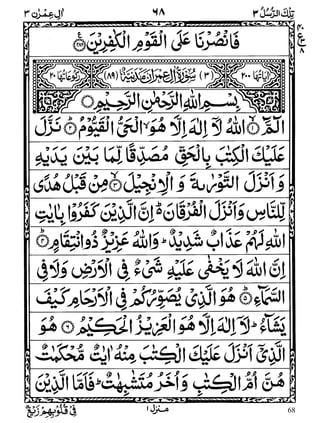 تِلْكَ الرُّسُلُ ٣ ٦٨ اٰلِ عِمْرٰن ٣
فَانْصُرْنَا عَلَى الْقَوْمِ الْكٰفِرِيْنَ
اٰيَاتُهَا ٢٠٠ (٣) سُوْرَةُ اٰلِ عِمْرٰنَ مَدَنِيَّةٌ (٨٩) رُكُوْعَاتُهَا ٢٠
بِسْمِ اللّٰهِ الرَّحْمٰنِ الرَّحِيْمِ
الٓمَّٓ ۙ﴿١﴾ اللّٰهُ لَاۤ اِلٰهَ اِلَّا هُوَ الْحَىُّ الْقَيُّوْمُ ﴿٢﴾ نَزَّلَ
عَلَيْكَ الْكِتٰبَ بِالْحَقِّ مُصَدِّقًا لِّمَا بَيْنَ يَدَيْهِ
وَاَنْزَلَ التَّوْرٰىةَ وَالْاِنْجِيْلَ ﴿٣﴾ مِنْ قَبْلُ هُدًى
لِّلنَّاسِ وَاَنْزَلَ الْفُرْقَانَ ؕ اِنَّ الَّذِيْنَ كَفَرُوْا بِاٰيٰتِ
اللّٰهِ لَهُمْ عَذَابٌ شَدِيْدٌ ؕ وَاللّٰهُ عَزِيْزٌ ذُو انْتِقَامٍ ﴿٤﴾
اِنَّ اللّٰهَ لَا يَخْفٰى عَلَيْهِ شَىْءٌ فِى الْاَرْضِ وَلَا فِى
السَّمَآءِ ﴿٥﴾ هُوَ الَّذِىْ يُصَوِّرُكُمْ فِى الْاَرْحَامِ كَيْفَ
يَشَآءُ ؕ لَاۤ اِلٰهَ اِلَّا هُوَ الْعَزِيْزُ الْحَكِيْمُ ﴿٦﴾ هُوَ
الَّذِىْۤ اَنْزَلَ عَلَيْكَ الْكِتٰبَ مِنْهُ اٰيٰتٌ مُّحْكَمٰتٌ
هُنَّ اُمُّ الْكِتٰبِ وَاُخَرُ مُتَشٰبِهٰتٌ ؕ فَاَمَّا الَّذِيْنَ
68 منزل ١ فِىْ قُلُوْبِهِمْ زَيْغٌ